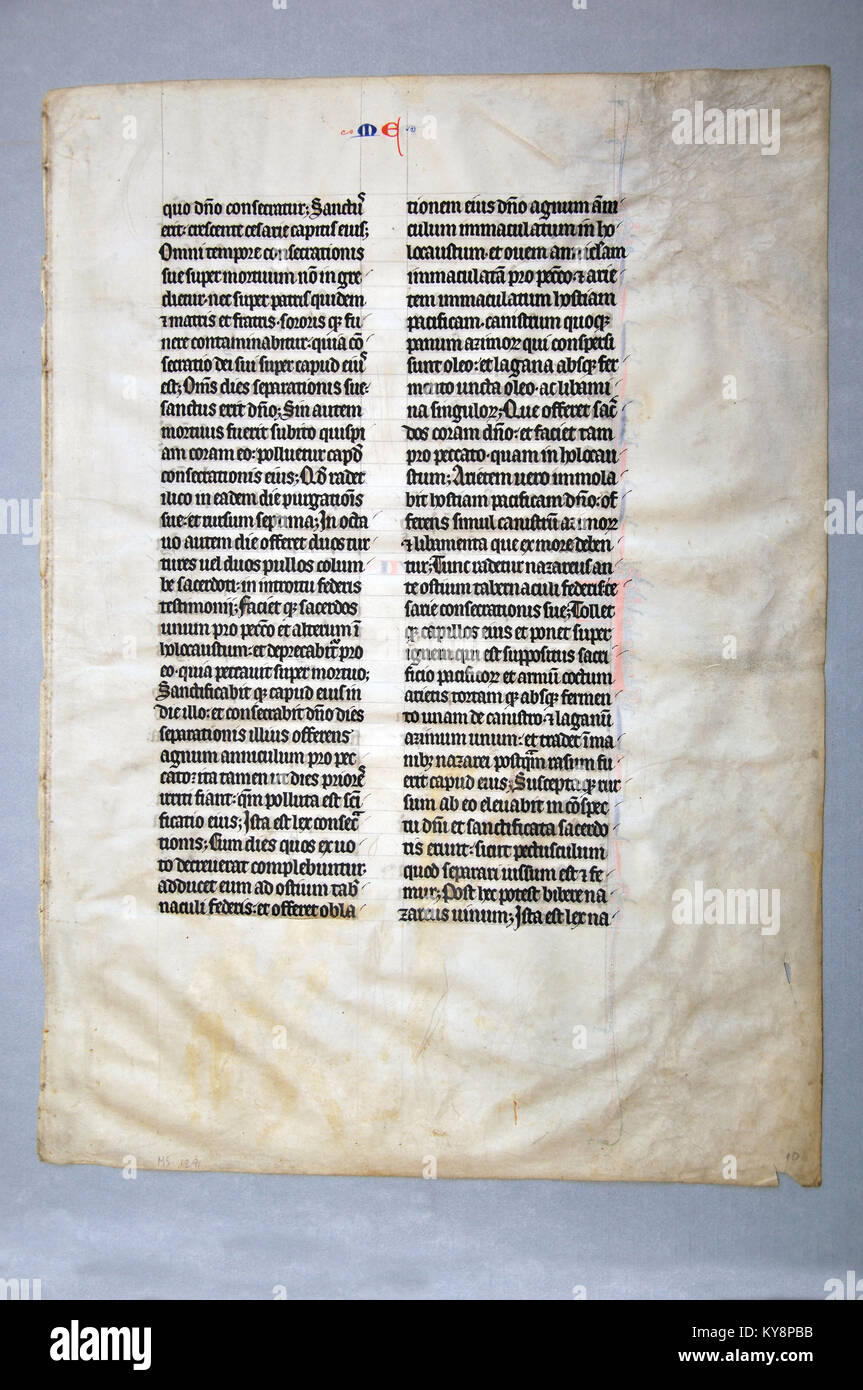 M E
quo dño consecratur; Sanctꝰ
erit· crescente cesarie capitis eius;
Omni tempore consecrationis
sue super mortuum nõ in gre
dietur· nec super patris quidem
⁊ matris et fratris· sororis qꝫ fu
nere contaminabitur· quia cõ
secratio dei sui super capud eiꝰ
est; Om̃s dies separationis sue·
sanctus erit dño; Sin autem
mortuus fuerit subito quispi
am coram eo· polluetur capđ
consecrationis eius; Qđ radet
ilico in eadem die purgatiõis
sue· et rursum septima; In octa
uo autem die offeret duos tur
tures uel duos pullos colum
be sacerdoti· in introitu federis
testimonij; Faciet qꝫ sacerdos
unum pro pecc̃o et alterum ĩ
holocaustum· et deprecabit᷑ pro
eo· quia peccauit super mortuo;
Sanctificabit qꝫ capud eius in
die illo· et consecrabit dño dies
separationis illius offerens
agnum anniculum pro pec
cato· ita tamen ut dies priorẽ
irriti fiant· qm̃ polluta est sc̃i
ficatio eius; Ista est lex consecᵃ
tionis; Cum dies quos ex uo
to decreuerat complebuntur·
adducet eum ad ostium tabꝰ
naculi federis· et offeret obla
tionem eius dño agnum ãni
culum immaculatum in ho
locaustum· et ouem anniculam
immaculatã pro pecc̃o· ⁊ arie
tem immaculatum hostiam
pacificam· canistrum quoqꝫ
panum azimoꝝ qui conspersi
sunt oleo· et lagana absqꝫ fer
mento uncta oleo· ac libami
na singuloꝝ; Que offeret sac̃
dos coram dño· et faciet tam
pro peccato· quam in holocau
stum; Arietem uero immola
bit hostiam pacificam dño· of
ferens simul canistrũ azimoꝝ
⁊ libamenta que ex more deben
tur; Tunc radetur nazareus an
te ostium tabernaculi federis ce
sarie consecrationis sue; Tollet
qꝫ capillos eius et ponet super
ignem qui est suppositus sacri
ficio pacificoꝝ et armũ coctum
arietis tortam qꝫ absqꝫ fermen
to unam de canistro· ⁊ laganũ
azimum unum· et tradet ĩ ma
nibꝫ nazarei postqᵃm rasum fu
erit capud eius; Suscepta qꝫ rur
sum ab eo eleuabit in cõspec
tu dñi et sanctificata sacerdo
tis erunt· sicut pectusculum
quod separari iussum est ⁊ fe
mur; Post hec potest bibere na
zareus uinum; Ista est lex na
MS 124
10
alamy
Image ID: KY8PBB
www.alamy.com